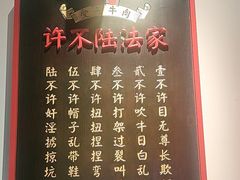 牛肉
家法陆不许
壹不许目无尊长欺
贰不许吹牛日白乱
叁不许打架过裂叫
肆不许扭扭捏捏弯
伍不许帽子乱带鞋
陆不许奸淫掳掠坑